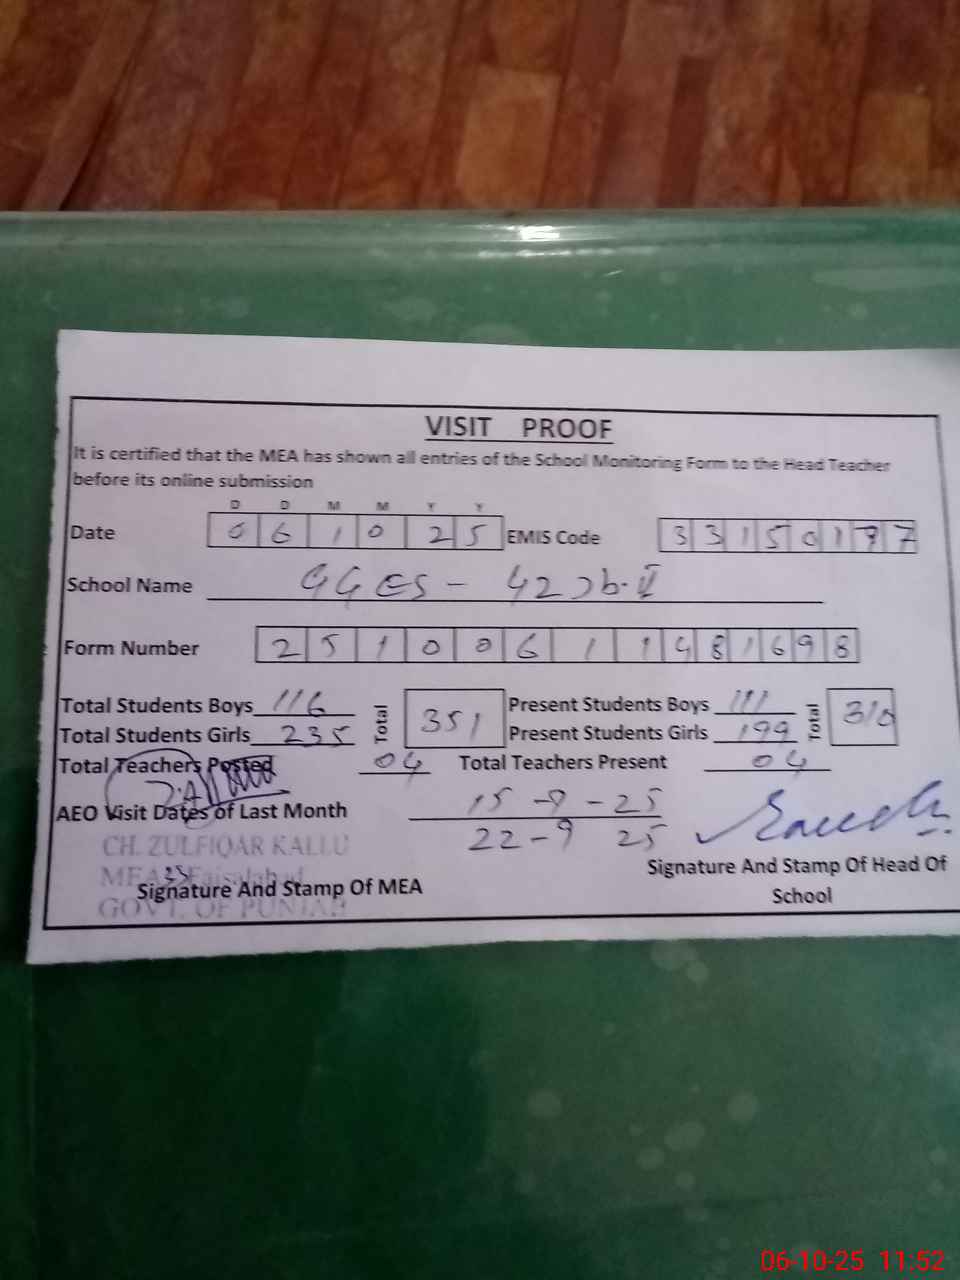 VISIT PROOF
It is certified that the MEA has shown all entries of the School Monitoring Form to the Head Teacher
before its online submission
D D M M Y Y
Date 0 6 1 0 2 5 EMIS Code 3 3 1 5 0 1 9 7
School Name GGES - 422 Jb. II
Form Number 2 5 1 0 0 6 1 1 4 8 1 6 9 8
Total Students Boys 116 Total 351 Present Students Boys 111 Total 310
Total Students Girls 235 Present Students Girls 199
Total Teachers Posted 04 Total Teachers Present 04
AEO Visit Dates of Last Month 15-9-25
22-9 25
CH. ZULFIQAR KALLU
MEA 35 Faisalabad
GOVT. OF PUNJAB
Signature And Stamp Of MEA
Signature And Stamp Of Head Of
School
06-10-25 11:52